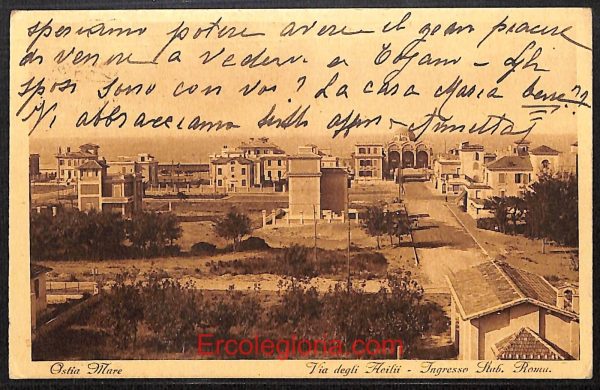 speriamo potere avere il gran piacere
di venire a vedervi e
sposi sono con voi? La casa Maria bene?
Vi abbracciamo tutti aff.mi Annetta
Ercolegloria.com
Ostia Mare
Via degli Acilii - Ingresso Stab. Roma.